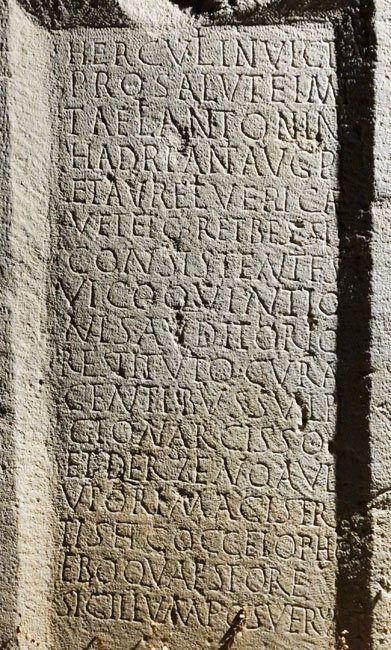 HERCVLI INVICT
PRO SALVTE IM
T AEL ANTONIN
HADRIANI AVG P
ET AVRELI VERI CA
VET ET C R ET BESSI
CONSISTENTE
VICO QVINTIO
NIS AVDITORIO
RESTITVTO CVRA
GENTIBVS SVLPI
CIO NARCISSO
ET DERZENO AVL
VPORI MAGISTR
TIS ET COCCEIO PH
EBO QVAESTORE
SICILLVM POSVERV